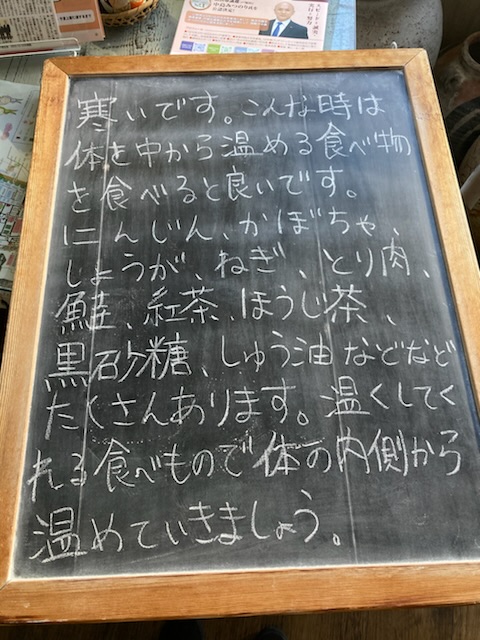 寒いです。こんな時は
体を中から温める食べ物
を食べると良いです。
にんじん、かぼちゃ、
しょうが、ねぎ、とり肉、
鮭、紅茶、ほうじ茶、
黒砂糖、しょう油などなど
たくさんあります。温くしてく
れる食べもので体の内側から
温めていきましょう。